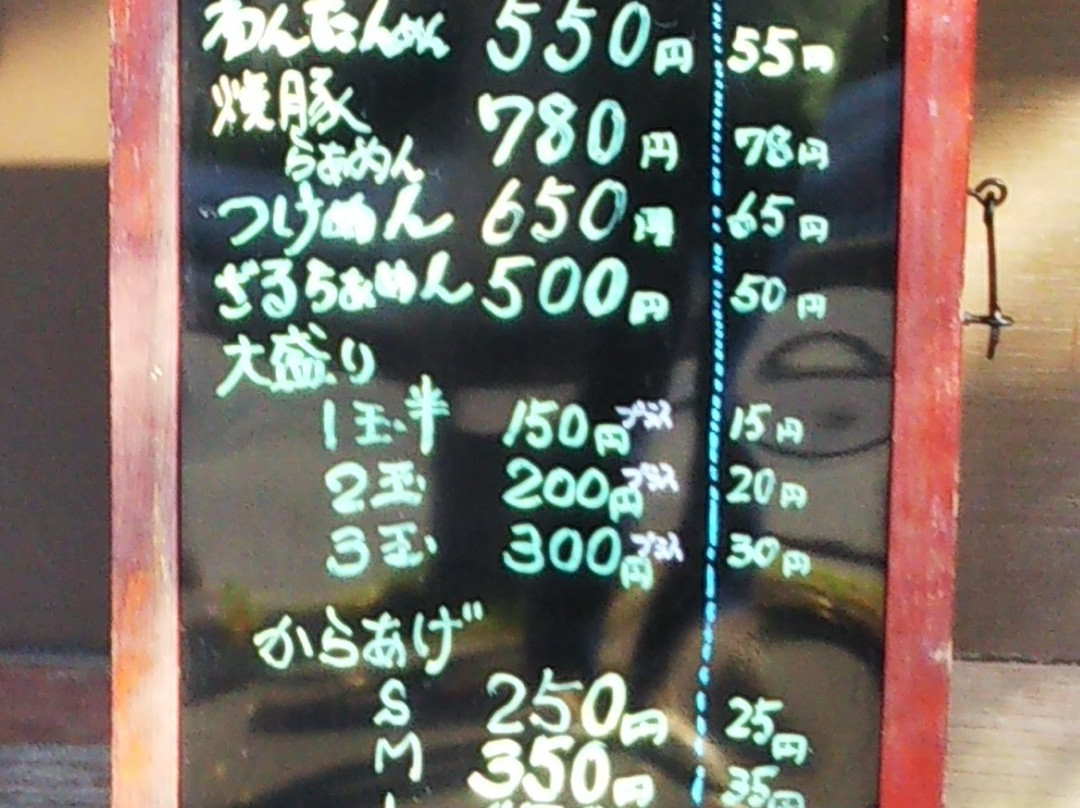 わんたんめん 550円 55円
焼豚
らぁめん 780円 78円
つけめん 650円 65円
ざるらぁめん 500円 50円
大盛り
1玉半 150円プラス 15円
2玉 200円プラス 20円
3玉 300円プラス 30円
からあげ
S 250円 25円
M 350円 35円